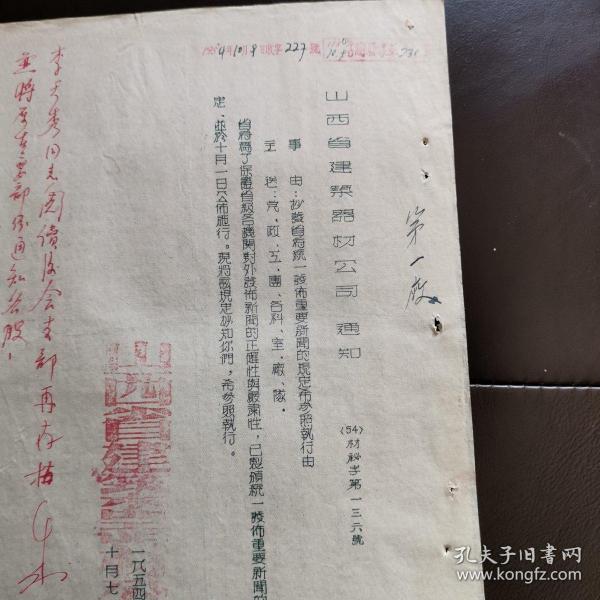 1954年10月9日收字227號
山西省建築器材公司 通知
第一股
(54)材秘字第一三六號
事由:抄發省府統一發佈重要新聞的規定希參照執行由
主送:党、政、工、團、各科、室、廠、隊。
省府為了保證省級各機關對外發佈新聞的正確性與嚴肅性,已製頒統一發佈重要新聞的
定,並於十月一日公佈施行。現將該規定抄知你們,希參照執行。
山西省建築
一九五四
十月七
同志閱讀後
會支部再存
通知各股
孔夫子旧书网
www.kongfz.com